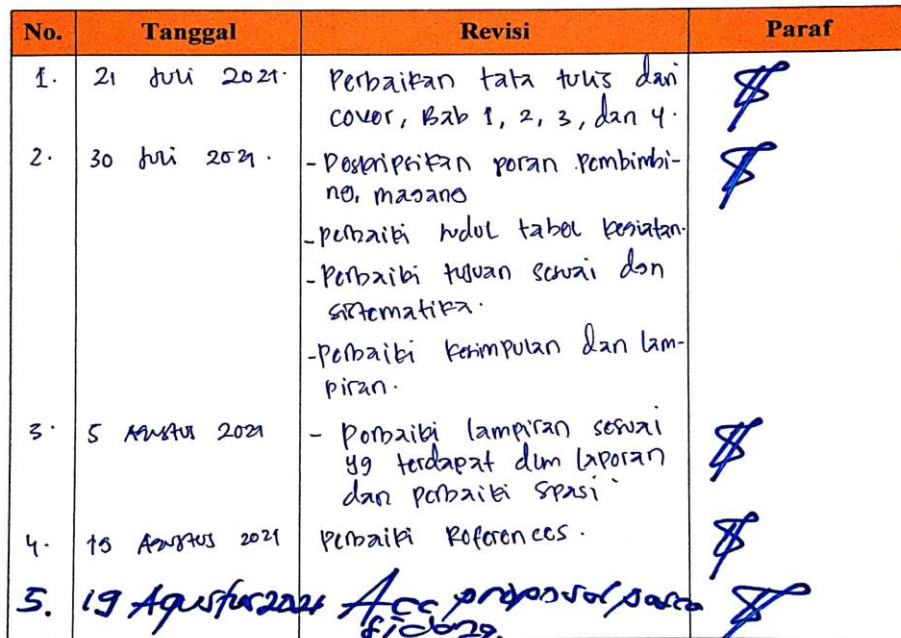 No. Tanggal Revisi Paraf
1. 21 Juli 2021. Perbaikan tata tulis dari
cover, Bab 1, 2, 3, dan 4.
2. 30 Juli 2021. - Deskripsikan peran Pembimbi-
ng, magang
- perbaiki judul tabel kegiatan.
- Perbaiki tujuan sesuai dgn
sistematika.
- perbaiki kesimpulan dan lam-
piran.
3. 5 Agustus 2021 - Perbaiki lampiran sesuai
yg terdapat dlm laporan
dan perbaiki spasi
4. Agustus 2021 Perbaiki References.
5. 19 Agustus 2021 Acc proposal pasca
sidang.